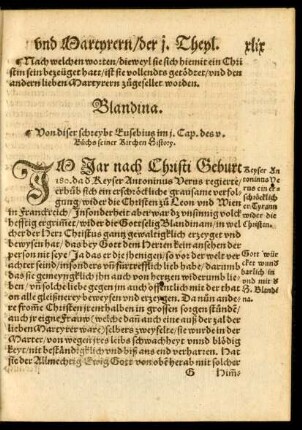 vnd Martyrern/der j. Theyl. xlix
Nach welchen worten/dieweyl sie sich hiemit ein Chri
stin sein bezeüget hatt/ist sie vollendts getödtet/vnd den
andern lieben Martyrern zůgesellet worden.
Blandina.
Von diser schreybt Eusebius im j. Cap. des v.
Bůchs seiner Kirchen History.
IM Jar nach Christi Geburt
180. da d Keyser Antoninus Verus regierte/
erhůb sich ein erschröckliche grausame verfol-
gung/wider die Christen zů Leon vnd Wien
in Franckreich/Jnsonderheit aber war dz vnsinnig volck
hefftig ergrimet/wider die Gottselig Blandinam/in wel
cher der Herr Christus gantz gewaltigklich erzeyget vnd
bewysen hat/das bey Gott dem Herren kein ansehen der
person nit seye/Ja das er die jhenigen/so vor der welt ver
achtet seind/sonders vnd fürtreffelich lieb habe/darumb
das sie gemeynigklich jhn auch von hertzen widerumb lie-
ben/vñ solche liebe gegen jm auch offentlich in der that on
on alle gleisnerey beweysen vnd erzeygen. Da nůn ande-
re fromme Christen jr enthalben in grossen sorgen stůnde/
auch jr eigne Fraw(welche dañ auch eine auß der zal der
lieben Martyrer ware)selbers zweyfelte/sie wurde in der
Marter/von wegen jres leibs schwachheyt vnnd blödig
keyt/nit bestendigklich vnd biß ans end verharren. Hat
sie der Allmechtig Ewig Gott von oben herab mit solcher
G Him̃-
Keyser An
toninus Ve
rus ein er-
schröcklich
er Tyrann
wider die
Christen.
Gott wür
cket wund
barlich in
vnd mit d
S. Blandi
na.